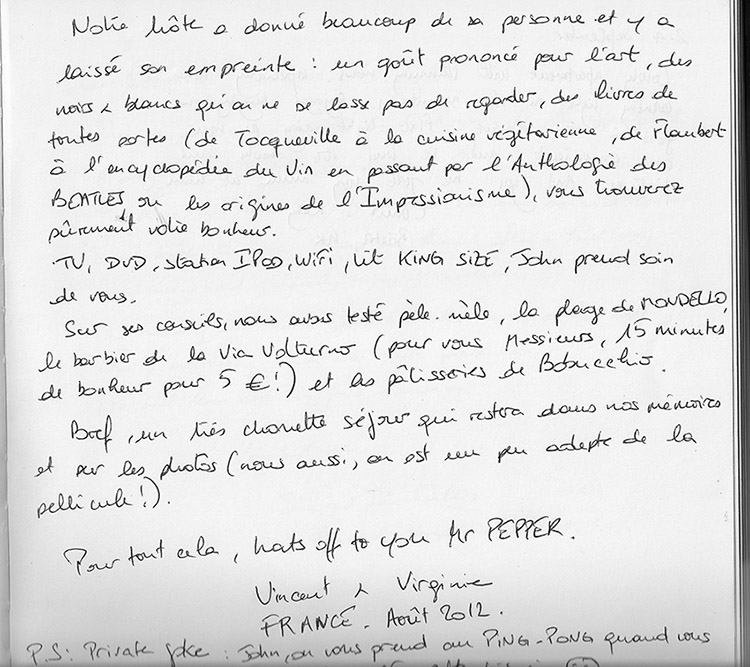 Notre hôte a donné beaucoup de sa personne et y a
laissé son empreinte : un goût prononcé pour l'art, des
noirs & blancs qu'on ne se lasse pas de regarder, des livres de
toutes sortes (de Tocqueville à la cuisine végétarienne, de Flaubert
à l'encyclopédie du Vin en passant par l'Anthologie des
BEATLES ou les origines de l'Impressionisme), vous trouverez
sûrement votre bonheur.
TV, DVD, station IPOD, WiFi, Lit KING SIZE, John prend soin
de vous.
Sur ses conseils, nous avons testé pèle-mèle, la plage de MONDELLO,
le barbier de la Via Volturno (pour vous Messieurs, 15 minutes
de bonheur pour 5 €!) et les pâtisseries de
Bref, un très chouette séjour qui restera dans nos mémoires
et sur les photos (nous aussi, on est un peu adepte de la
pellicule!).
Pour tout cela, hats off to you Mr PEPPER.
Vincent & Virginie
FRANCE - Août 2012.
P.S: Private joke : John, on vous prend au PING-PONG quand vous